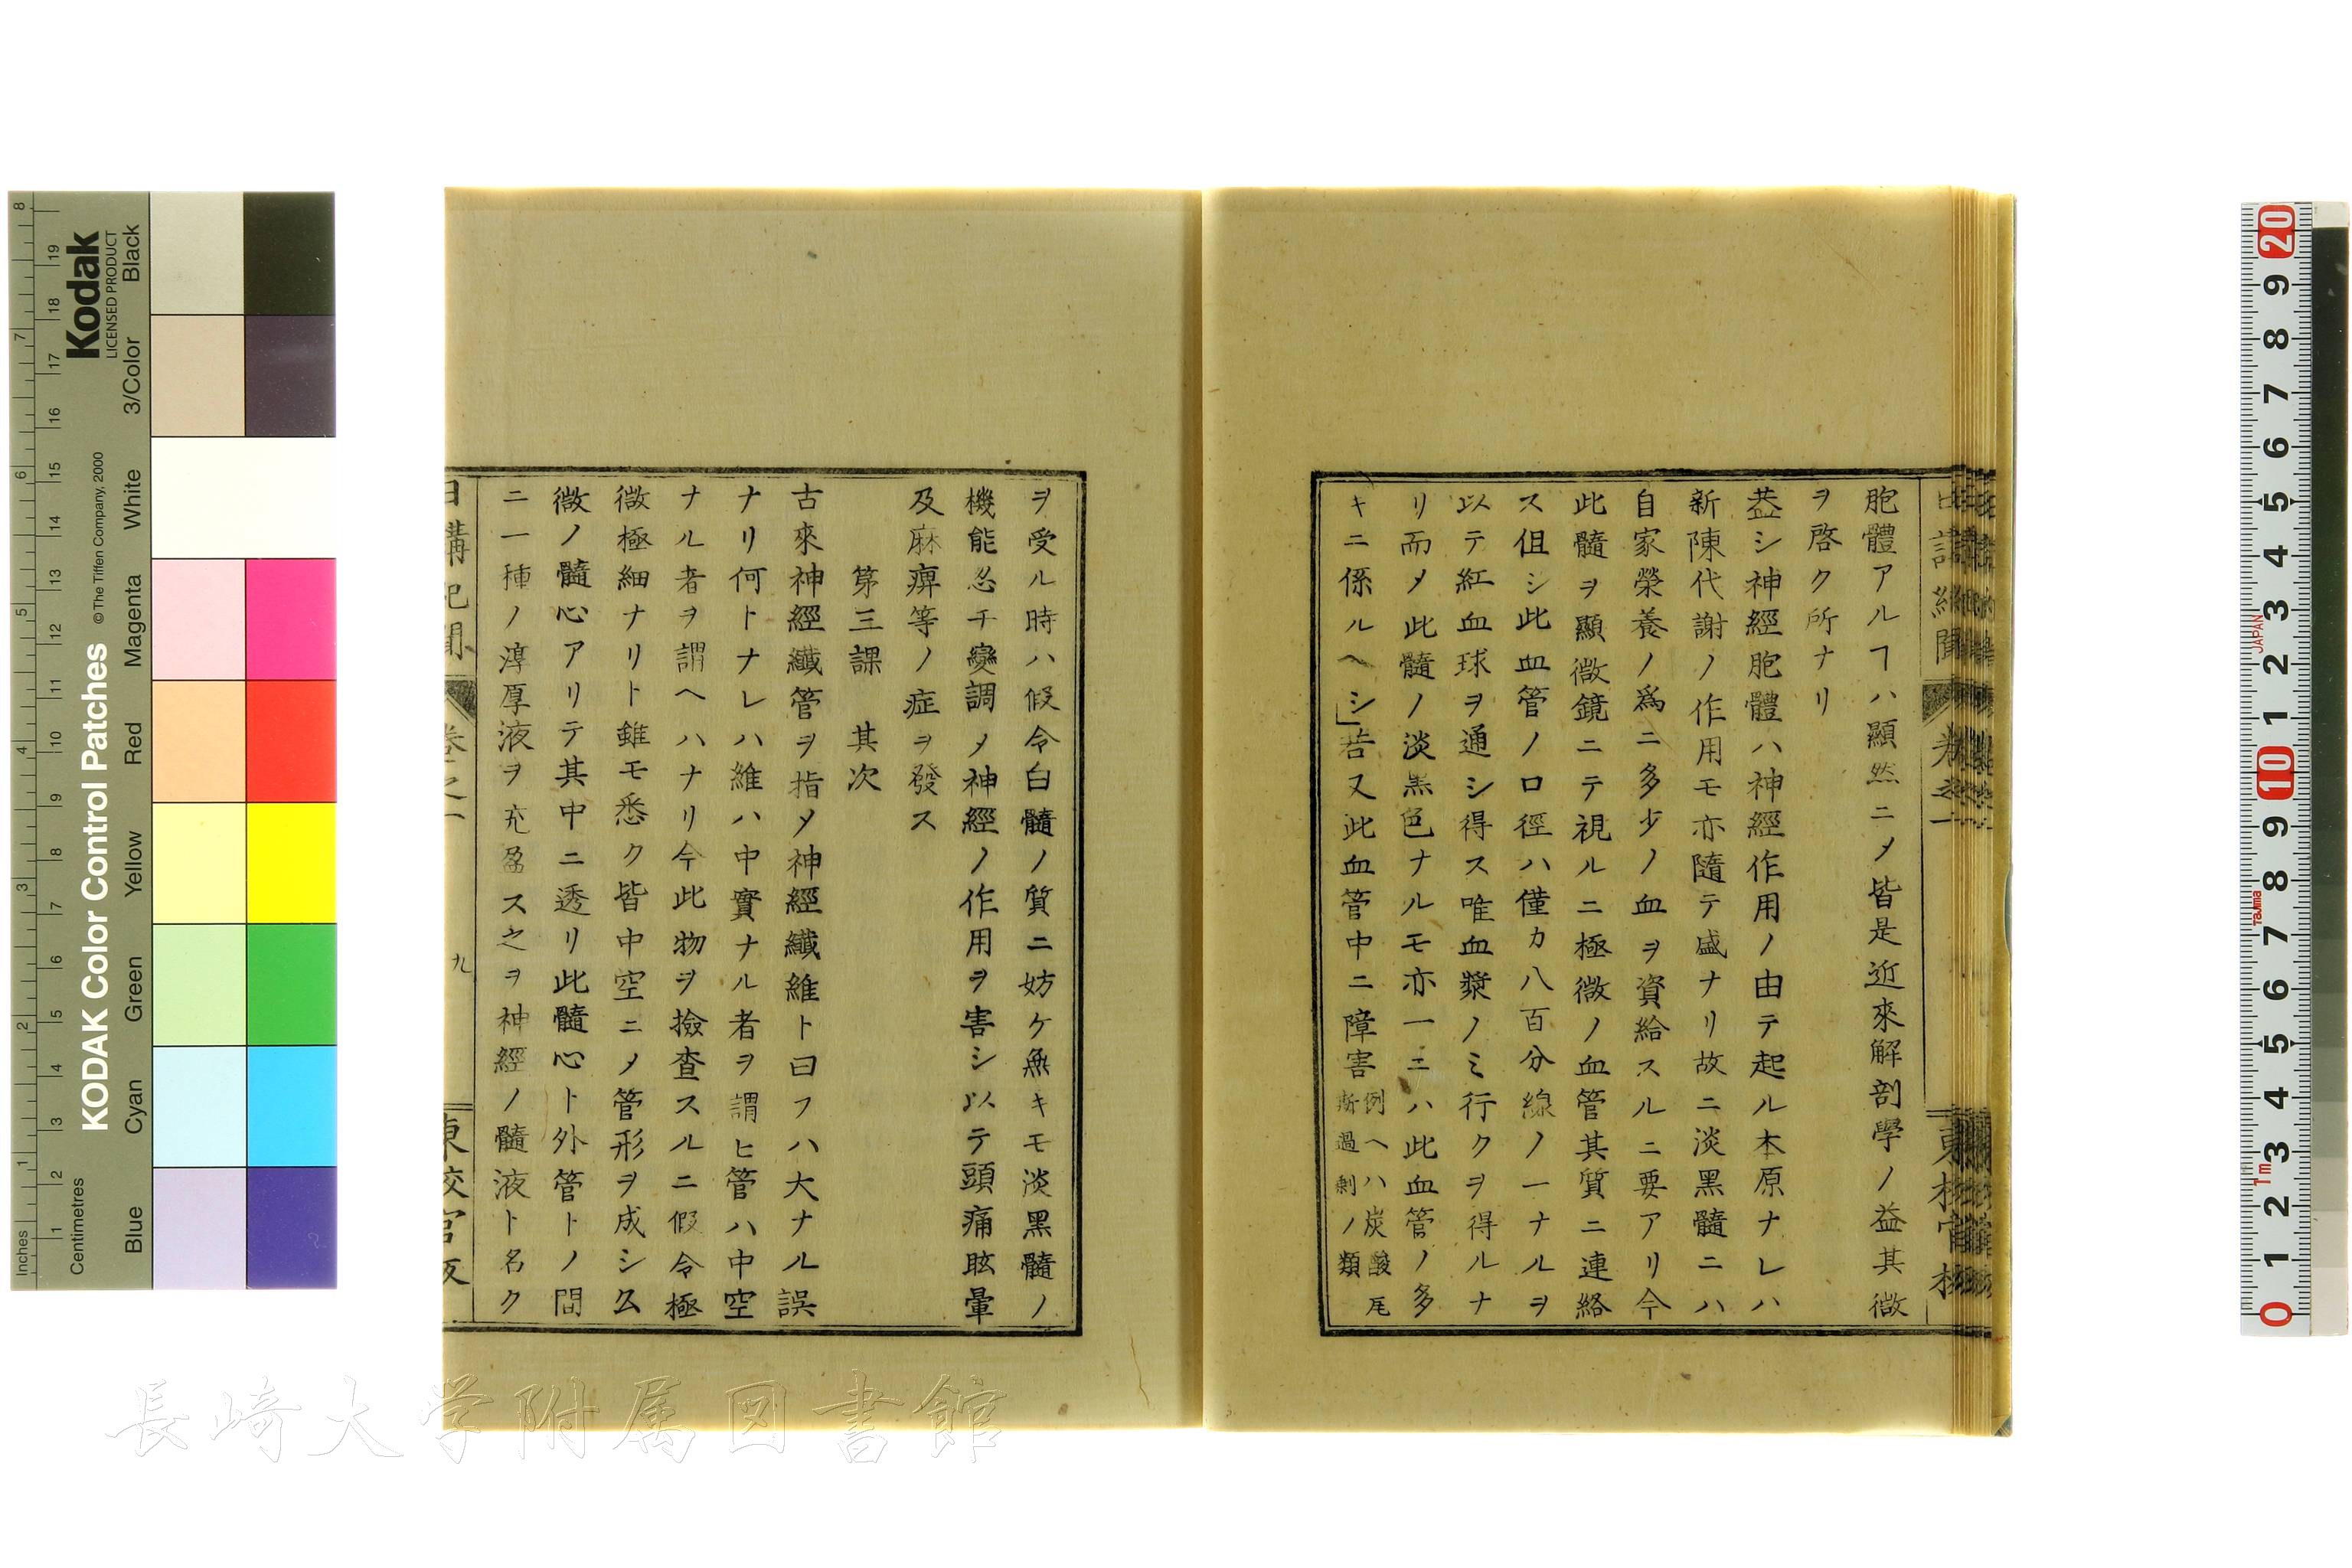 胞體アルヿハ顯然ニメ皆是近來解剖學ノ益其微
ヲ啓ク所ナリ
葢シ神經胞體ハ神經作用ノ由テ起ル本原ナレハ
新陳代謝ノ作用モ亦隨テ盛ナリ故ニ淡黑髓ニハ
自家榮養ノ爲ニ多少ノ血ヲ資給スルニ要アリ今
此髓ヲ顯微鏡ニテ視ルニ極微ノ血管其質ニ連絡
ス伹シ此血管ノ口徑ハ僅カ八百分線ノ一ナルヲ
以テ紅血球ヲ通シ得ス唯血漿ノミ行クヲ得ルナ
リ而メ此髓ノ淡黑色ナルモ亦一ニハ此血管ノ多
キニ係ルヘシ」若又此血管中ニ障害例ヘハ炭酸瓦斯過剩ノ類
ヲ受ル時ハ假令白髓ノ質ニ妨ケ無キモ淡黑髓ノ
機能忽チ變調メ神經ノ作用ヲ害シ以テ頭痛眩暈
及麻痺等ノ症ヲ發ス
第三課 其次
古來神經纎管ヲ指メ神經纎維ト曰フハ大ナル誤
ナリ何トナレハ維ハ中實ナル者ヲ謂ヒ管ハ中空
ナル者ヲ謂ヘハナリ今此物ヲ撿査スルニ假令極
微極細ナリト雖モ悉ク皆中空ニメ管形ヲ成シ厶
微ノ髓心アリテ其中ニ透リ此髓心ト外管トノ間
ニ一種ノ淳厚液ヲ充盈ス之ヲ神經ノ髓液ト名ク
日講記聞 卷之一 九 東校官版
KODAK Color Control Patches
© The Tiffen Company, 2000
Kodak
LICENSED PRODUCT
Inches 1 2 3 4 5 6 7 8
Centimetres 1 2 3 4 5 6 7 8 9 10 11 12 13 14 15 16 17 18 19
Blue Cyan Green Yellow Red Magenta White 3/Color Black
0 1 2 3 4 5 6 7 8 9 10 1 2 3 4 5 6 7 8 9 20
1m Tajima JAPAN
長崎大学附属図書館